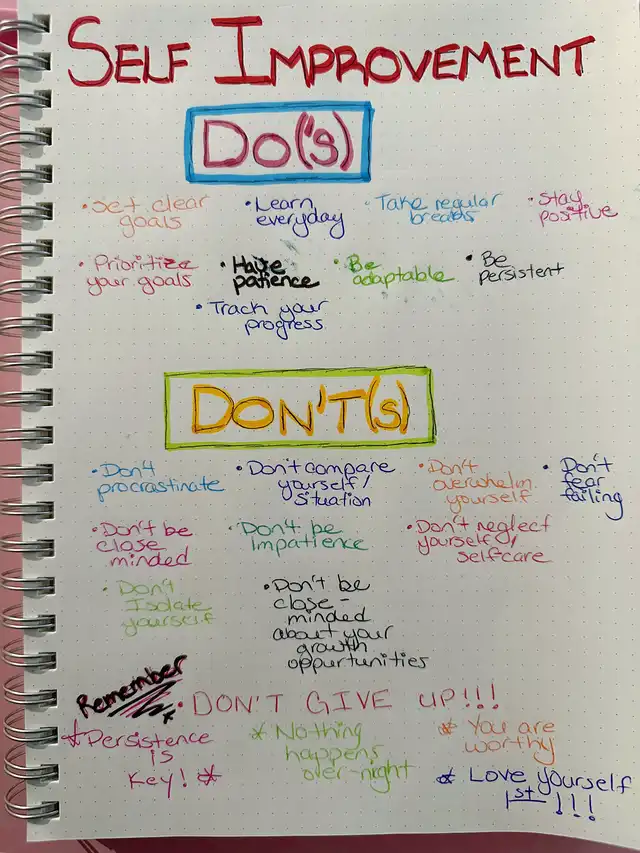 SELF IMPROVEMENT
DO('s)
• Set clear
goals
• Learn
everyday
• Take regular
breaks
• Stay
positive
• Prioritize
your goals
• Have
patience
• Be
adaptable
• Be
persistent
• Track your
progress
DON'T(s)
• Don't
procrastinate
• Don't compare
yourself/
situation
• Don't
overwhelm
yourself
• Don't
fear
failing
• Don't be
close
minded
• Don't be
impatience
• Don't neglect
yourself/
selfcare
• Don't
Isolate
yourself
• Don't be
close-
minded
about your
growth
oppurtunities
Remember
* • DON'T GIVE UP!!!
* Persistence
is
Key! *
* Nothing
happens
over-night
* You are
worthy
* Love yourself
1st !!!